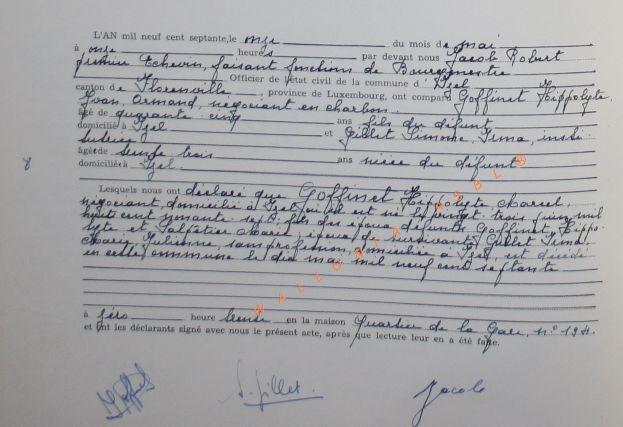 L'AN mil neuf cent septante, le onze du mois de mai
à onze heures par devant nous Jacob Robert
premier Echevin, faisant fonctions de Bourgmestre
Officier de l'état civil de la commune d'Izel
canton de Florenville, province de Luxembourg, ont comparu Goffinet Hippolyte,
Yvan, Armand, négociant en charbon
âgé de quarante cinq ans fils du défunt
domicilié à Izel et Gillet Simone, Irma, insti-
tutrice
âgée de trois ans nièce du défunt
domiciliée à Izel
8
Lesquels nous ont déclaré que Goffinet Hippolyte Marcel,
négociant, domicilié à Izel, y est né le vingt trois juin mil
huit cent nonante sept, fils des époux défunts Goffinet, Hippo-
lyte et Salpétier Maria; époux de survivante Gillet Irma,
Marie, Julienne, sans profession, domiciliée à Izel, est décédé
en cette commune le dix mai mil neuf cent septante
à zéro heure trente en la maison Quartier de la Gare, n° 124.
et ont les déclarants signé avec nous le présent acte, après que lecture leur en a été faite.
S. Gillet Jacob
WALLONIA ASBL ©